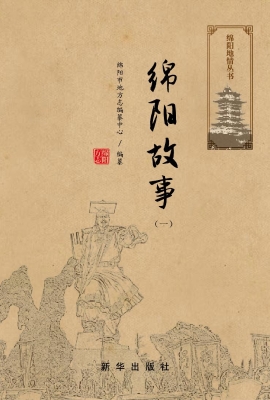 绵阳地情丛书
绵阳故事
(一)
绵阳市地方志编纂中心/编纂
新华出版社